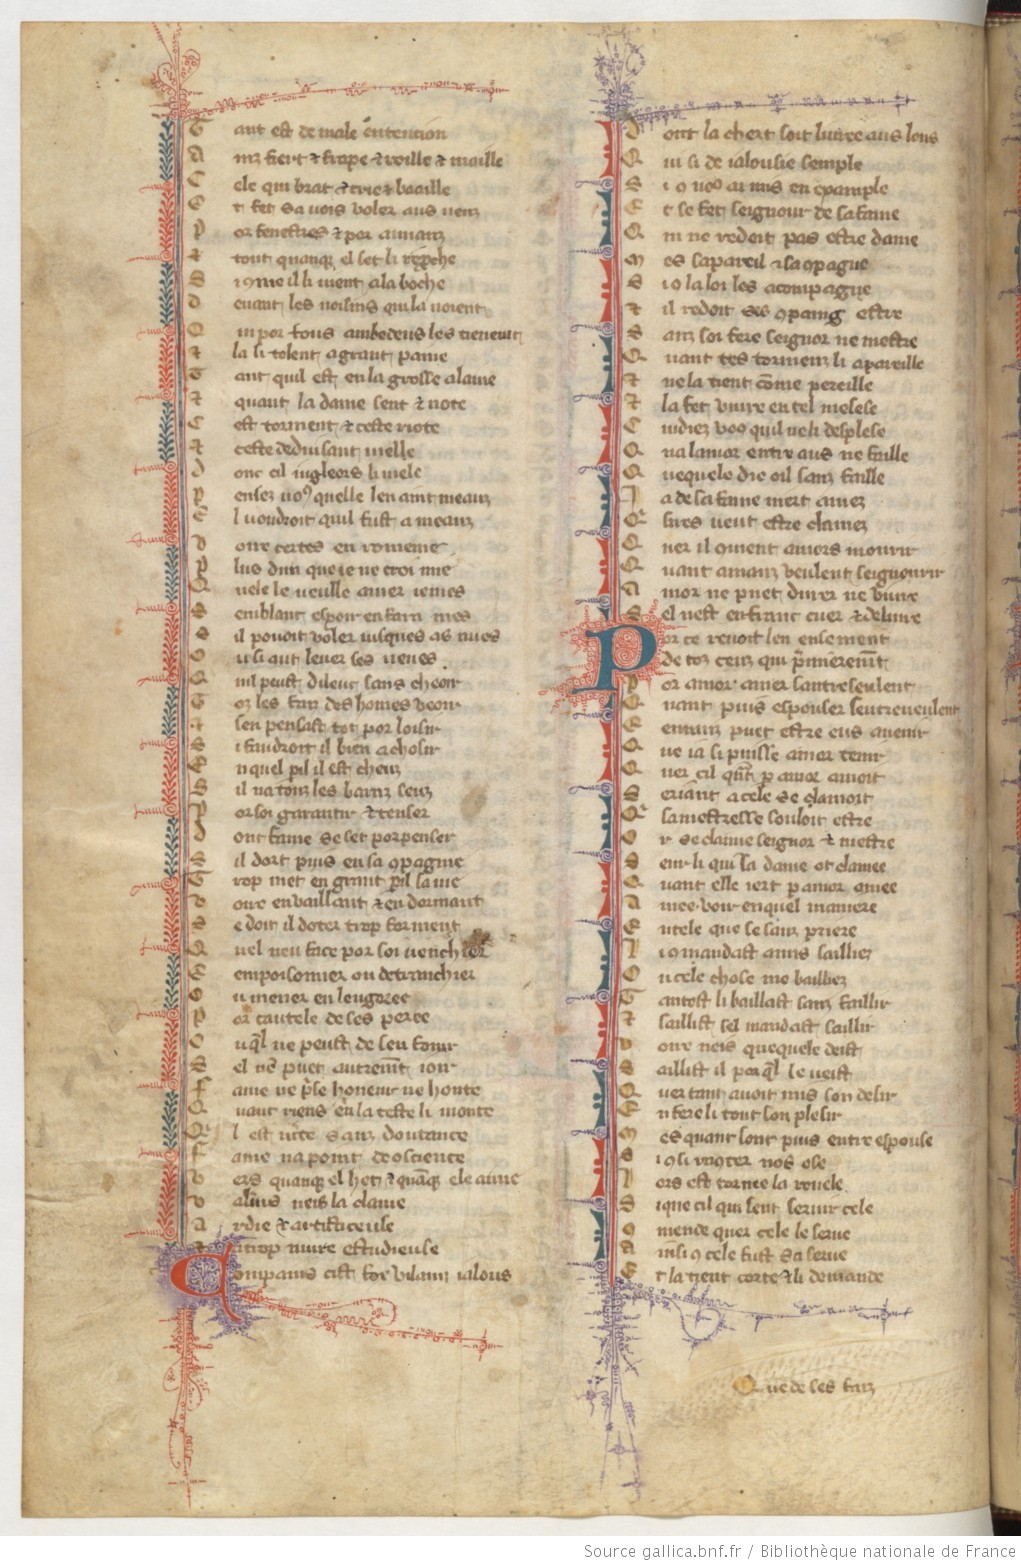 T ant est de male entencion
A inz fiert & frape & roille & maille
C ele qui brait & crie & baaille
E t fet sa vois voler aus venz
P or fenestres & por auvanz
t tout quanque el set li reproche
S i 9me il li vient a la boche
D evant les voisins qui la voient
Q ui por fous ambedeus les tienent
t la li tolent a grant paine
T ant quil est en la grosse alaine
t quant la dame sent & note
C est torment & ceste riote
t ceste deduisant vielle
D ont cil iugleors li viele
P ensez vo9 quelle len aint meauz
E l voudroit quil fust a meauz
V oire certes en romenie
P lus dirai que ie ne croi mie
Q uele le veulle amer iames
S emblant espoir en fara mes
S il pooit voler iusques as nues
O u si aut lever ses veues
Q uil peust dileuc sans cheoir
T oz les faiz des homes veoir
t sen pensast tot por loisir
S i faudroit il bien a choisir
E n quel pil il est cheuz
S il na touz les baraz seuz
P or soi garantir & tenser
D ont fame se set porpenser
S il dort puis en sa 9pagnie
T rop met en grant pil sa vie
V oire en vaillant & en dormant
S e doit il doter trop forment
Q uel neu face por soi venchier
E mpoisonner ou detranchier
O u mener en lengoree
P or cautele deses peree
O u ql ne peust de seu fouir
S el nen puet autrement ioir
F ame ne prise honeur ne honte
Q uant riens en la teste li monte
Q l est verite sanz doutance
F ame na point de 9science
V ers quanque el het & quanque ele aime
V alerius neis la claime
A rdie & artificeuse
t a trop nuire estudieuse
Compainz cist fox vilainz ialous
D ont la chart soit livree aus lous
Q ui si de ialousie semple
S i 9 vo9 ai mis en exanple
E t se fet seigneur de sa fame
Q ui ne redoit pas estre dame
M es sa pareil & sa 9pagne
S i 9 la loi les acompagne
t il redoit ses 9paing estre
S anz soi fere seignor ne mestre
Q uant tes tormenz li apareille
t ne la tient come pereille
t la fet vivre en tel mesese
C uidiez vo9 quil neli desplese
Q ue lamor entre aus ne faille
Q uequele die oil sanz faille
I a de sa fame niert amez
Q sires veut estre clamez
Q uer il 9vient amors mourir
Q uant amanz veulent seignourir
A mor ne puet durer ne vivre
S el nest en franc cuer & delivre
Por ce revoit len ensement
De toz ceux qui primerement
P or amor amer santreseulent
Q uant puis espouser sentreveulent
E nvuiz puet estre eus avenir
Q ue ia si puisse amor tenir
Q uer cil quant par amor amoit
S eriant a cele se clamoit
Q sa mestresse souloit estre
O r se claime seignor & mestre
S eur li qui sa dame ot clamee
Q uant elle iert par amor amee
A mee voir en quel maniere
E n tele que se sanz priere
I i 9mandast amis saillez
O u cele chose me bailliez
T antost li baillast sanz faillir
t saillist sel mandast saillir
V oire neis quequele deist
S aillist il por ql le veist
Q uer tant avoit mis son desir
E n fere li tout son plesir
M es quant sont puis entre espouse
S i 9 li raconter vos ose
L ors est tornee la roueele
S ique cil qui sent servir cele
C omende quer cele le serve
A insi 9 cele fust sa serve
E t la tient corte & li demande
Que de ses faiz
Source gallica.bnf.fr / Bibliothèque nationale de France